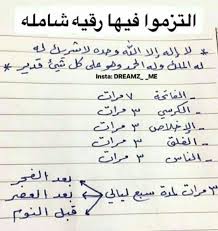 التزموا فيها رقيه شامله
* لا إله إلا الله وحده لا شريك له
له الملك وله الحمد وهو على كل شيئ قدير *
Insta: DREAMZ_ _ME
- الفاتحة ٧ مرات
- الكرسي ٣ مرات
- الإخلاص ٣ مرات
- الفلق ٣ مرات
- الناس ٣ مرات
بعد الفجر
٣ مرات لمدة سبع ليالي بعد العصر
قبل النوم